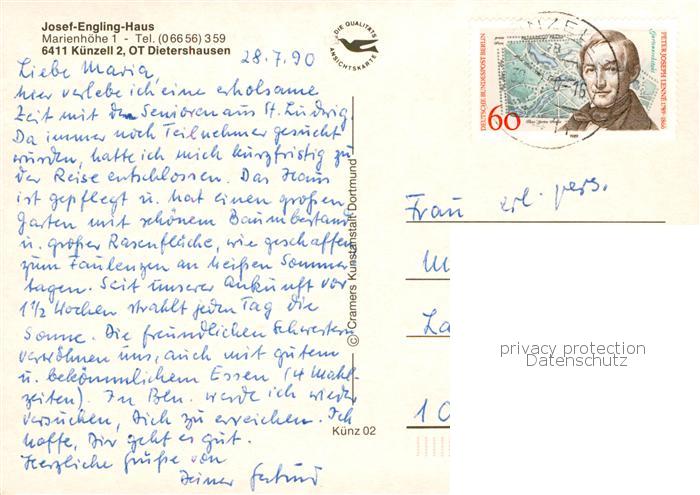 Josef-Engling-Haus
Marienhöhe 1 - Tel. (06656) 359
6411 Künzell 2, OT Dietershausen
DIE QUALITÄTS
ANSICHTSKARTE
28.7.90
Liebe Maria,
hier verlebe ich eine erholsame
Zeit mit den Senioren aus St. Ludwig.
Da immer noch Teilnehmer gesucht
wurden, hatte ich mich kurzfristig zu
der Reise entschlossen. Das Haus
ist gepflegt u. hat einen großen
Garten mit schönem Baumbestand
u. großer Rasenfläche, wie geschaffen
zum Faulenzen an heißen Sommer
tagen. Seit unserer Ankunft vor
1 1/2 Wochen strahlt jeden Tag die
Sonne. Die freundlichen Schwestern
verwöhnen uns, auch mit gutem
u. bekömmlichem Essen (4 Mahl-
zeiten). In Bln. werde ich wieder
versuchen, Dich zu erreichen. Ich
hoffe, Dir geht es gut.
Herzliche Grüße von
Deiner Gertrud
© Cramers Kunstanstalt Dortmund
Künz 02
DEUTSCHE BUNDESPOST BERLIN
60
PETER JOSEPH LENNÉ 1789-1866
Gartenarchitekt
1989
Frau erl. pers.
M
La
10
privacy protection
Datenschutz